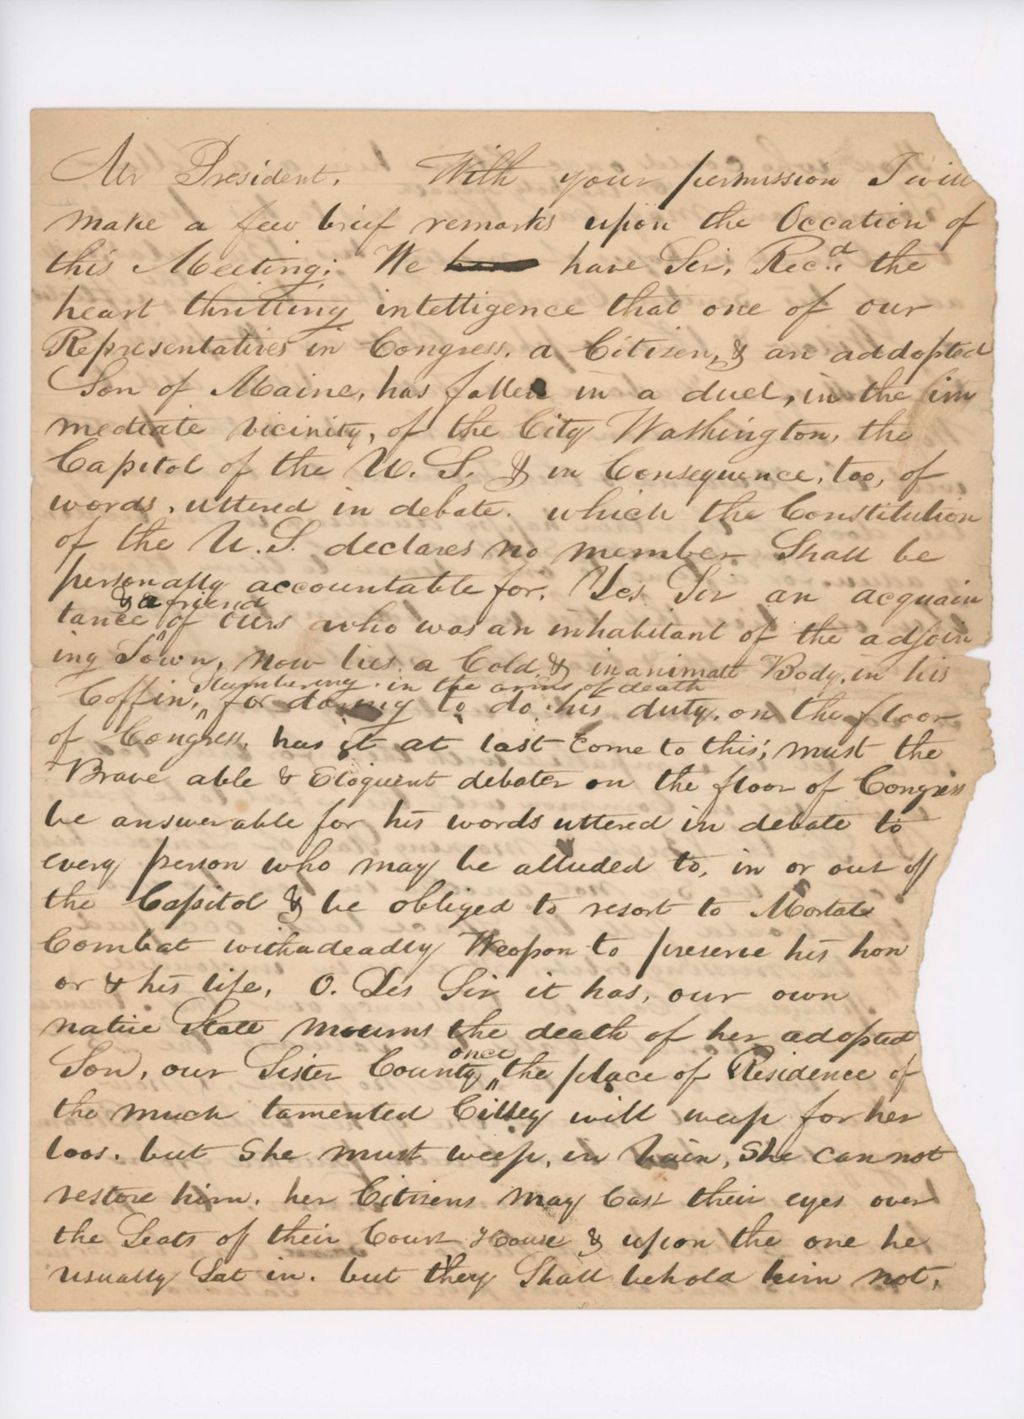 Mr President. With your permission I will
make a few brief remarks upon the Occation of
this Meeting; We have Sir, Rec.d the
heart thrilling intelligence that one of our
Representatives in Congress, a Citizen, & an addopted
Son of Maine, has fallen in a duel, in the im
mediate vicinity, of the City Washington, the
Capitol of the U.S. & in Consequence, too, of
words, uttered in debate. which the Constitution
of the U.S. declares no member Shall be
personally accountable for. Yes Sir an acquain
& a friend
tance of ours who was an inhabitant of the adjoin
ing Town, now lies a Cold & inanimate Body, in his
Slumbering in the arms of death
Coffin, for daring to do his duty, on the floor
of Congress, has it at last come to this; must the
Brave able & Eloquent debater on the floor of Congress
be answerable for his words uttered in debate to
every person who may be alluded to, in or out of
the Capitol & be obliged to resort to Mortal
Combat with a deadly Weopon to preserve his hon
or & his life, O. Yes Sir it has, our own
native State mourns the death of her adopted
once
Son, our Sister County the place of Residence of
the much lamented Cilley will weep for her
loos. but She must weep, in Vain, She can not
restore him. her Citizens may Cast their eyes over
the Seats of their Court House & upon the one he
usually Sat in. but they Shall behold him not,